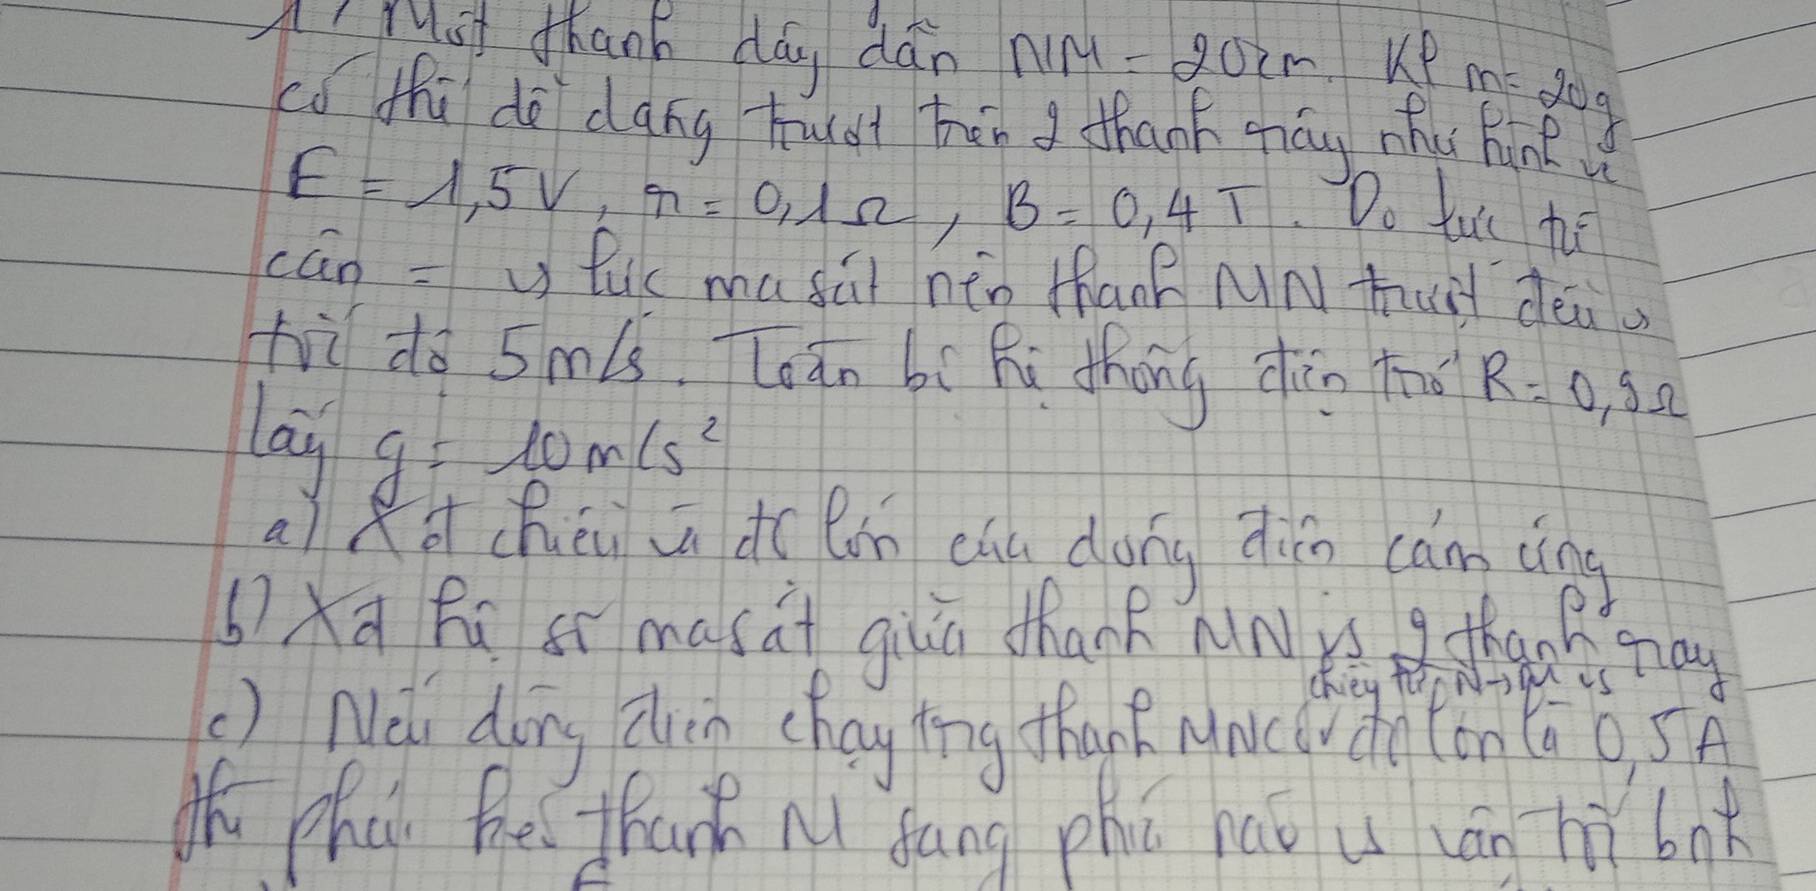 1, Một thanh dây dẫn NM = 20cm. KL m = 20g
có thể dễ dàng trượt trên 2 thanh ray như hình vẽ
E = 1,5V, r = 0,1Ω, B = 0,4T. Do lực từ
cân = vs lực ma sát nên thanh MN trượt đều vs
tốc độ 5m/s. Toàn bộ hệ thống điện trở R = 0,9Ω
lấy g = 10m/s²
a) Xđ chiều và độ lớn của dòng điện cảm ứng
b) Xđ hệ số ma sát giữa thanh MN vs 2 thanh ray
chiều từ N→M vs
c) Nếu dòng điện chạy trog thanh MN có độ lớn là 0,5A
thì phải kéo thanh M sang phía nào vs vận tốc bnh